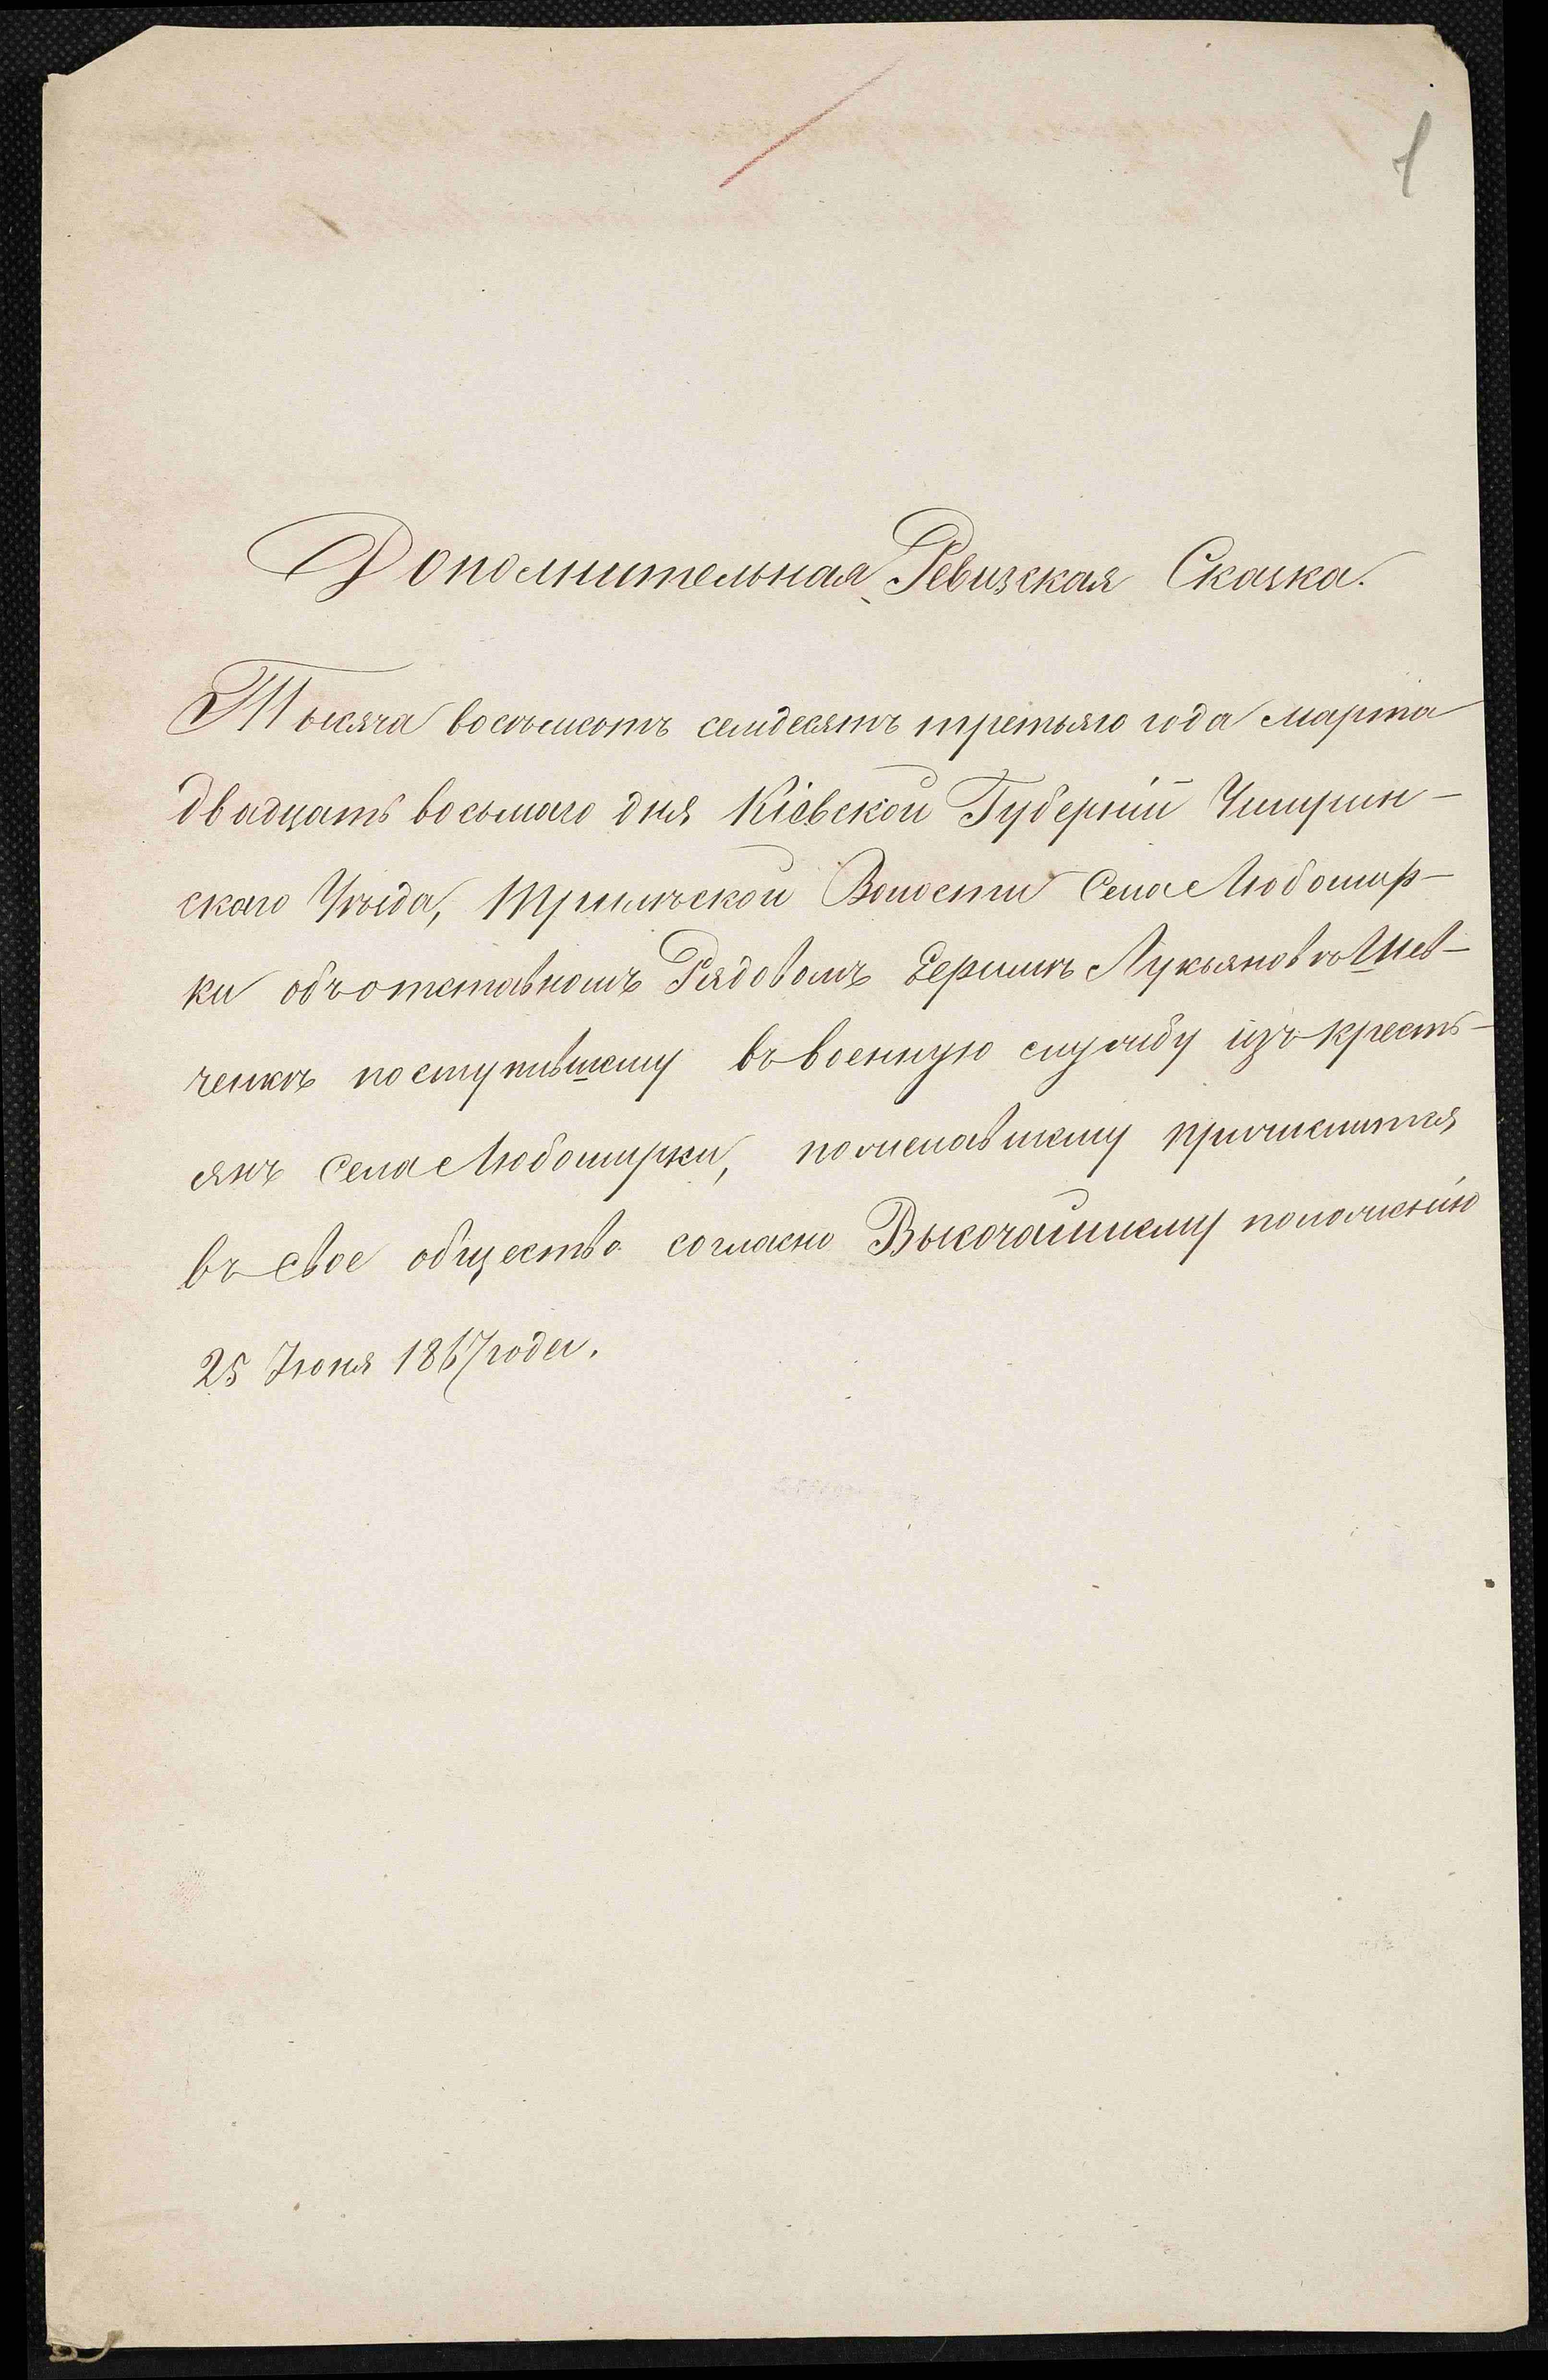 1
Дополнительная Ревизская Сказка.
Тысяча восемьсотъ семдесятъ третьяго года марта
двадцать восьмаго дня Кіевской Губерніи Чигирин-
скаго Уѣзда, Трилѣской Волости Села Любомир-
ки объ отставномъ Рядовомъ Ефимѣ Лукьяновѣ Шев-
ченкѣ поступившему въ военную службу изъ кресть-
янъ села Любомирки, пожелавшему причислится
въ свое общество согласно Высочайшему положенію
25 Іюня 1867 года.